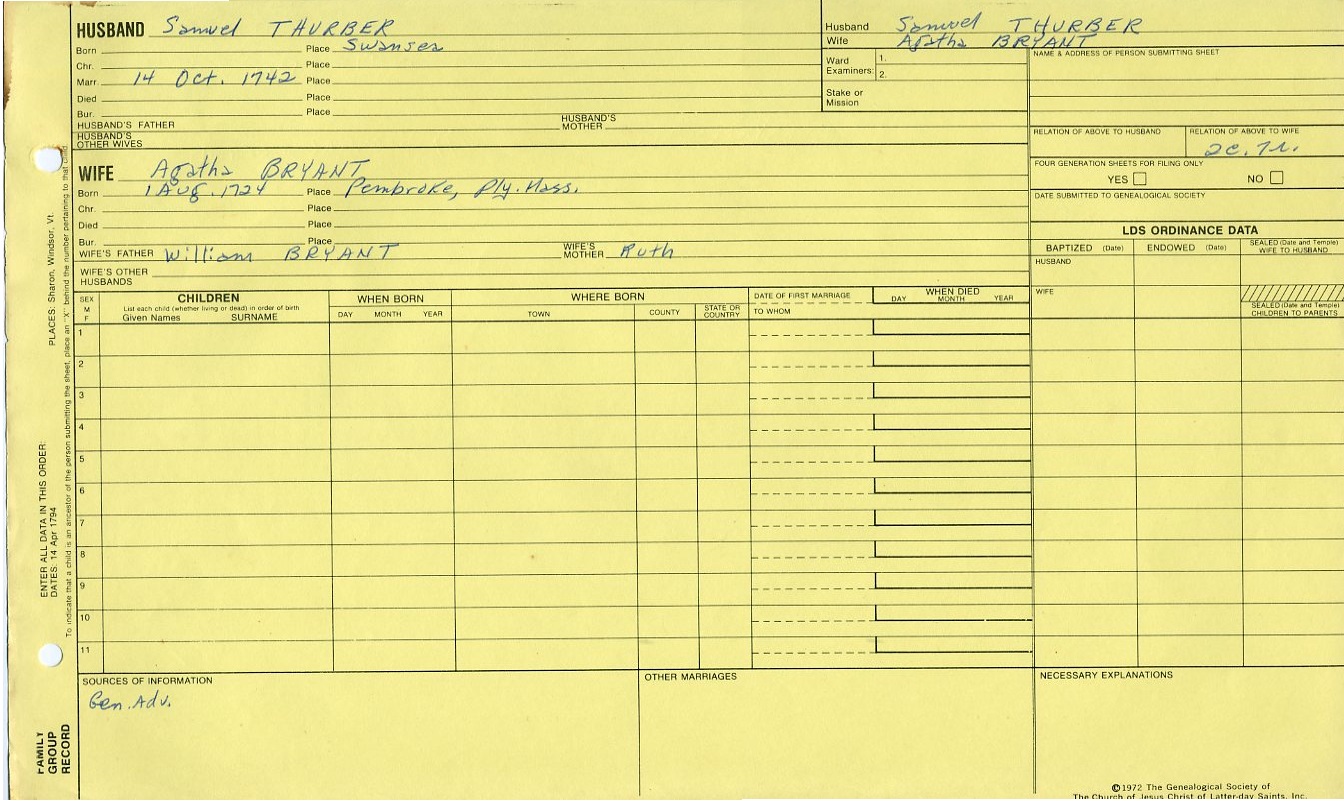 HUSBAND Samuel THURBER
Born Place Swansea
Chr. Place
Marr. 14 Oct. 1742 Place
Died Place
Bur. Place
HUSBAND'S FATHER HUSBAND'S MOTHER
HUSBAND'S OTHER WIVES
WIFE Agatha BRYANT
Born 1 Aug. 1724 Place Pembroke, Ply. Mass.
Chr. Place
Died Place
Bur. Place
WIFE'S FATHER William BRYANT WIFE'S MOTHER Ruth
WIFE'S OTHER HUSBANDS
Husband Samuel THURBER
Wife Agatha BRYANT
Ward Examiners: 1.
2.
Stake or Mission
NAME & ADDRESS OF PERSON SUBMITTING SHEET
RELATION OF ABOVE TO HUSBAND RELATION OF ABOVE TO WIFE
2c. 7r.
FOUR GENERATION SHEETS FOR FILING ONLY
YES NO
DATE SUBMITTED TO GENEALOGICAL SOCIETY
LDS ORDINANCE DATA
BAPTIZED (Date) ENDOWED (Date) SEALED (Date and Temple) WIFE TO HUSBAND
HUSBAND
WIFE
SEALED (Date and Temple) CHILDREN TO PARENTS
SEX M F
CHILDREN
List each child (whether living or dead) in order of birth
Given Names SURNAME
WHEN BORN
DAY MONTH YEAR
WHERE BORN
TOWN COUNTY STATE OR COUNTRY
DATE OF FIRST MARRIAGE
TO WHOM
WHEN DIED
DAY MONTH YEAR
1
2
3
4
5
6
7
8
9
10
11
SOURCES OF INFORMATION
Gen. Adv.
OTHER MARRIAGES
NECESSARY EXPLANATIONS
©1972 The Genealogical Society of
The Church of Jesus Christ of Latter-day Saints, Inc.
FAMILY GROUP RECORD
ENTER ALL DATA IN THIS ORDER:
DATES: 14 Apr 1794
PLACES: Sharon, Windsor, Vt.
To indicate that a child is an ancestor of the person submitting the sheet, place an "X" behind the number pertaining to that child.